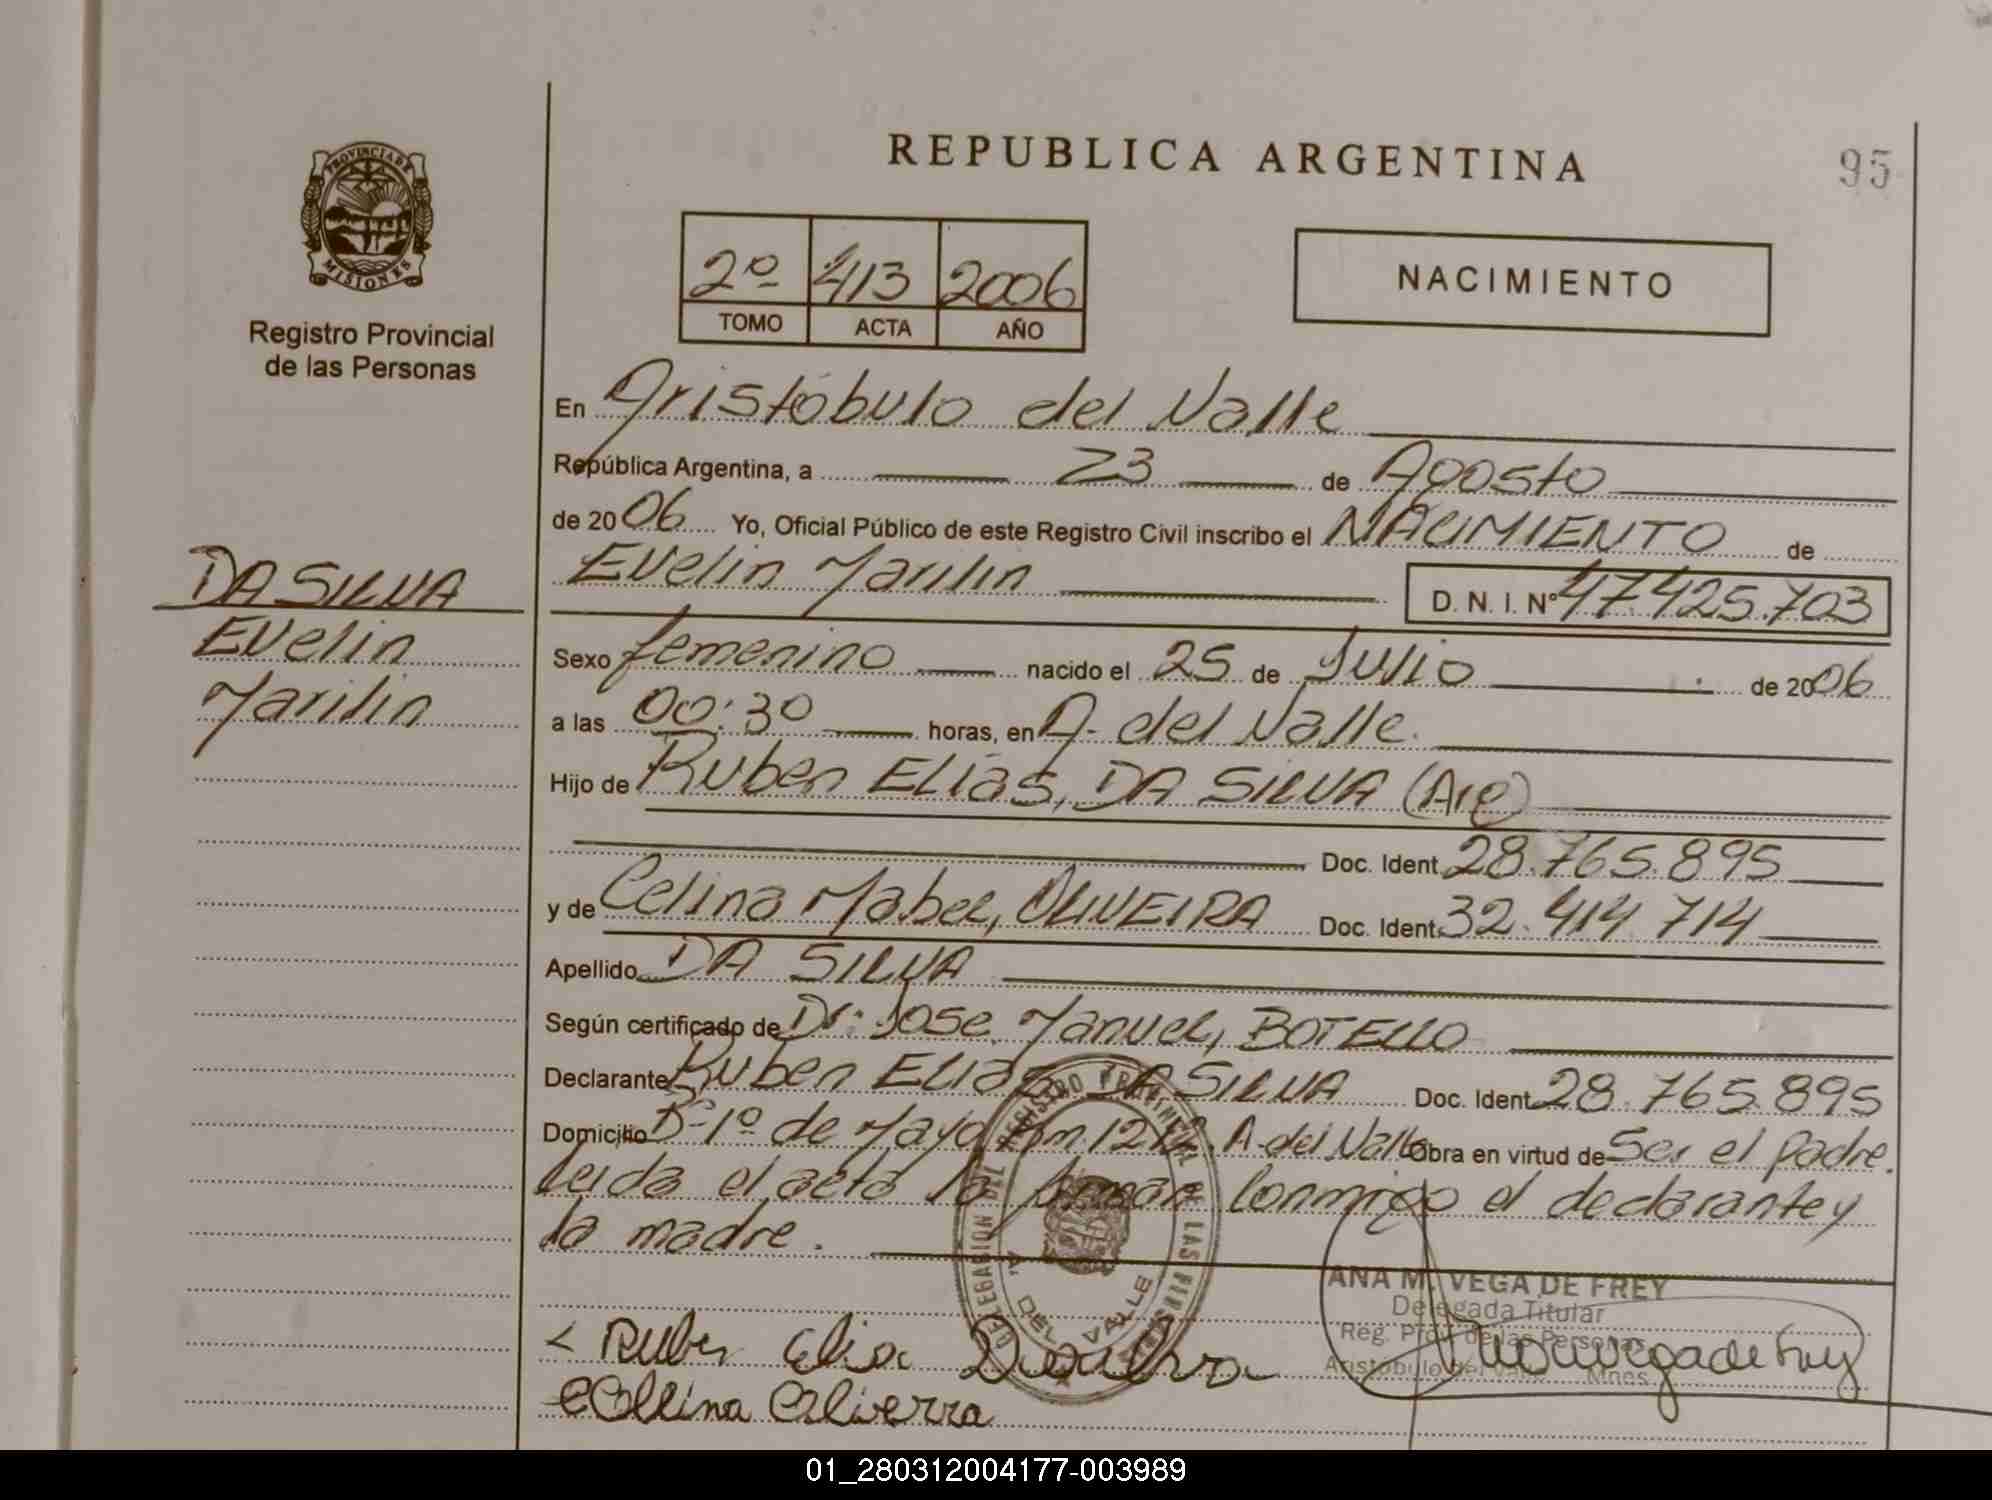 REPUBLICA ARGENTINA
95
PROVINCIA DE
MISIONES
Registro Provincial
de las Personas
2º 413 2006
TOMO ACTA AÑO
NACIMIENTO
En Aristóbulo del Valle
República Argentina, a 23 de Agosto
de 2006 Yo, Oficial Público de este Registro Civil inscribo el NACIMIENTO de
Evelin Marilin D. N. I. Nº 47.425.703
DA SILVA
Evelin
Marilin
Sexo femenino nacido el 25 de Julio de 2006
a las 00:30 horas, en A. del Valle.
Hijo de Ruben Elias, DA SILVA (Arg)
Doc. Ident. 28.765.895
y de Celina Mabel, OLIVEIRA Doc. Ident. 32.414.714
Apellido DA SILVA
Según certificado de Dr: Jose Manuel, BOTELLO
Declarante Ruben Elias DA SILVA Doc. Ident. 28.765.895
Domicilio Bº 1º de Mayo Km 1212 A. del Valle Obra en virtud de Ser el padre.
leida el acta la firman conmigo el declarante y
la madre.
DELEGACION DEL REGISTRO PROVINCIAL DE LAS PERSONAS
A. DEL VALLE
ANA M. VEGA DE FREY
Delegada Titular
Reg. Prov. de las Personas
Aristóbulo del Valle Mnes
Ruben Elia Dasilva
Celina Oliverra
01_280312004177-003989